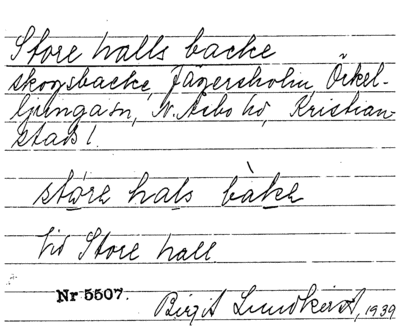 Store halls backe
skogsbacke, Jägersholm, Örkel-
ljunga sn, N. Åsbo hd, Kristian-
stads l.
støre hals bàke
hd Store hall
Nr 5507.
Birgit Lundkvist, 1939